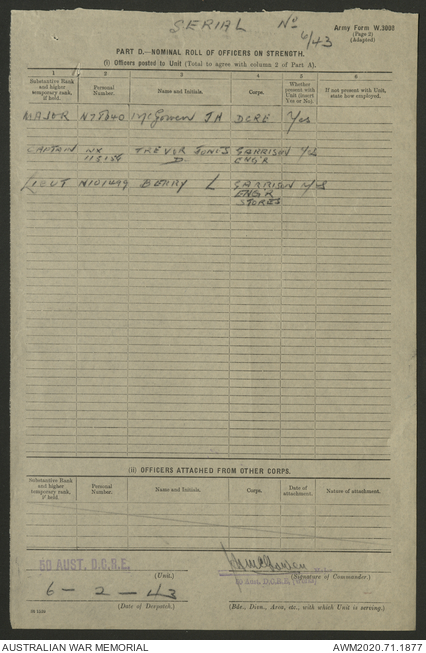 SERIAL No 6/43
Army Form W.3008
(Page 2)
(Adapted)
PART D.—NOMINAL ROLL OF OFFICERS ON STRENGTH.
(i) Officers posted to Unit (Total to agree with column 2 of Part A).
1 2 3 4 5 6
Substantive Rank and higher temporary rank, if held. Personal Number. Name and Initials. Corps. Whether present with Unit (insert Yes or No). If not present with Unit, state how employed.
MAJOR N78040 McGowen JH DCRE Yes
CAPTAIN WX TREVOR JONES GARRISON Yes
D ENG'R
LIEUT N101499 BERRY L GARRISON Yes
ENG'R
STORES
(ii) OFFICERS ATTACHED FROM OTHER CORPS.
Substantive Rank and higher temporary rank, if held. Personal Number. Name and Initials. Corps. Date of attachment. Nature of attachment.
60 AUST. D.C.R.E.
(Unit.)
(Signature of Commander.)
6-2-43
(Date of Despatch.)
(Bde., Divn., Area, etc., with which Unit is serving.)
AUSTRALIAN WAR MEMORIAL
AWM2020.71.1877